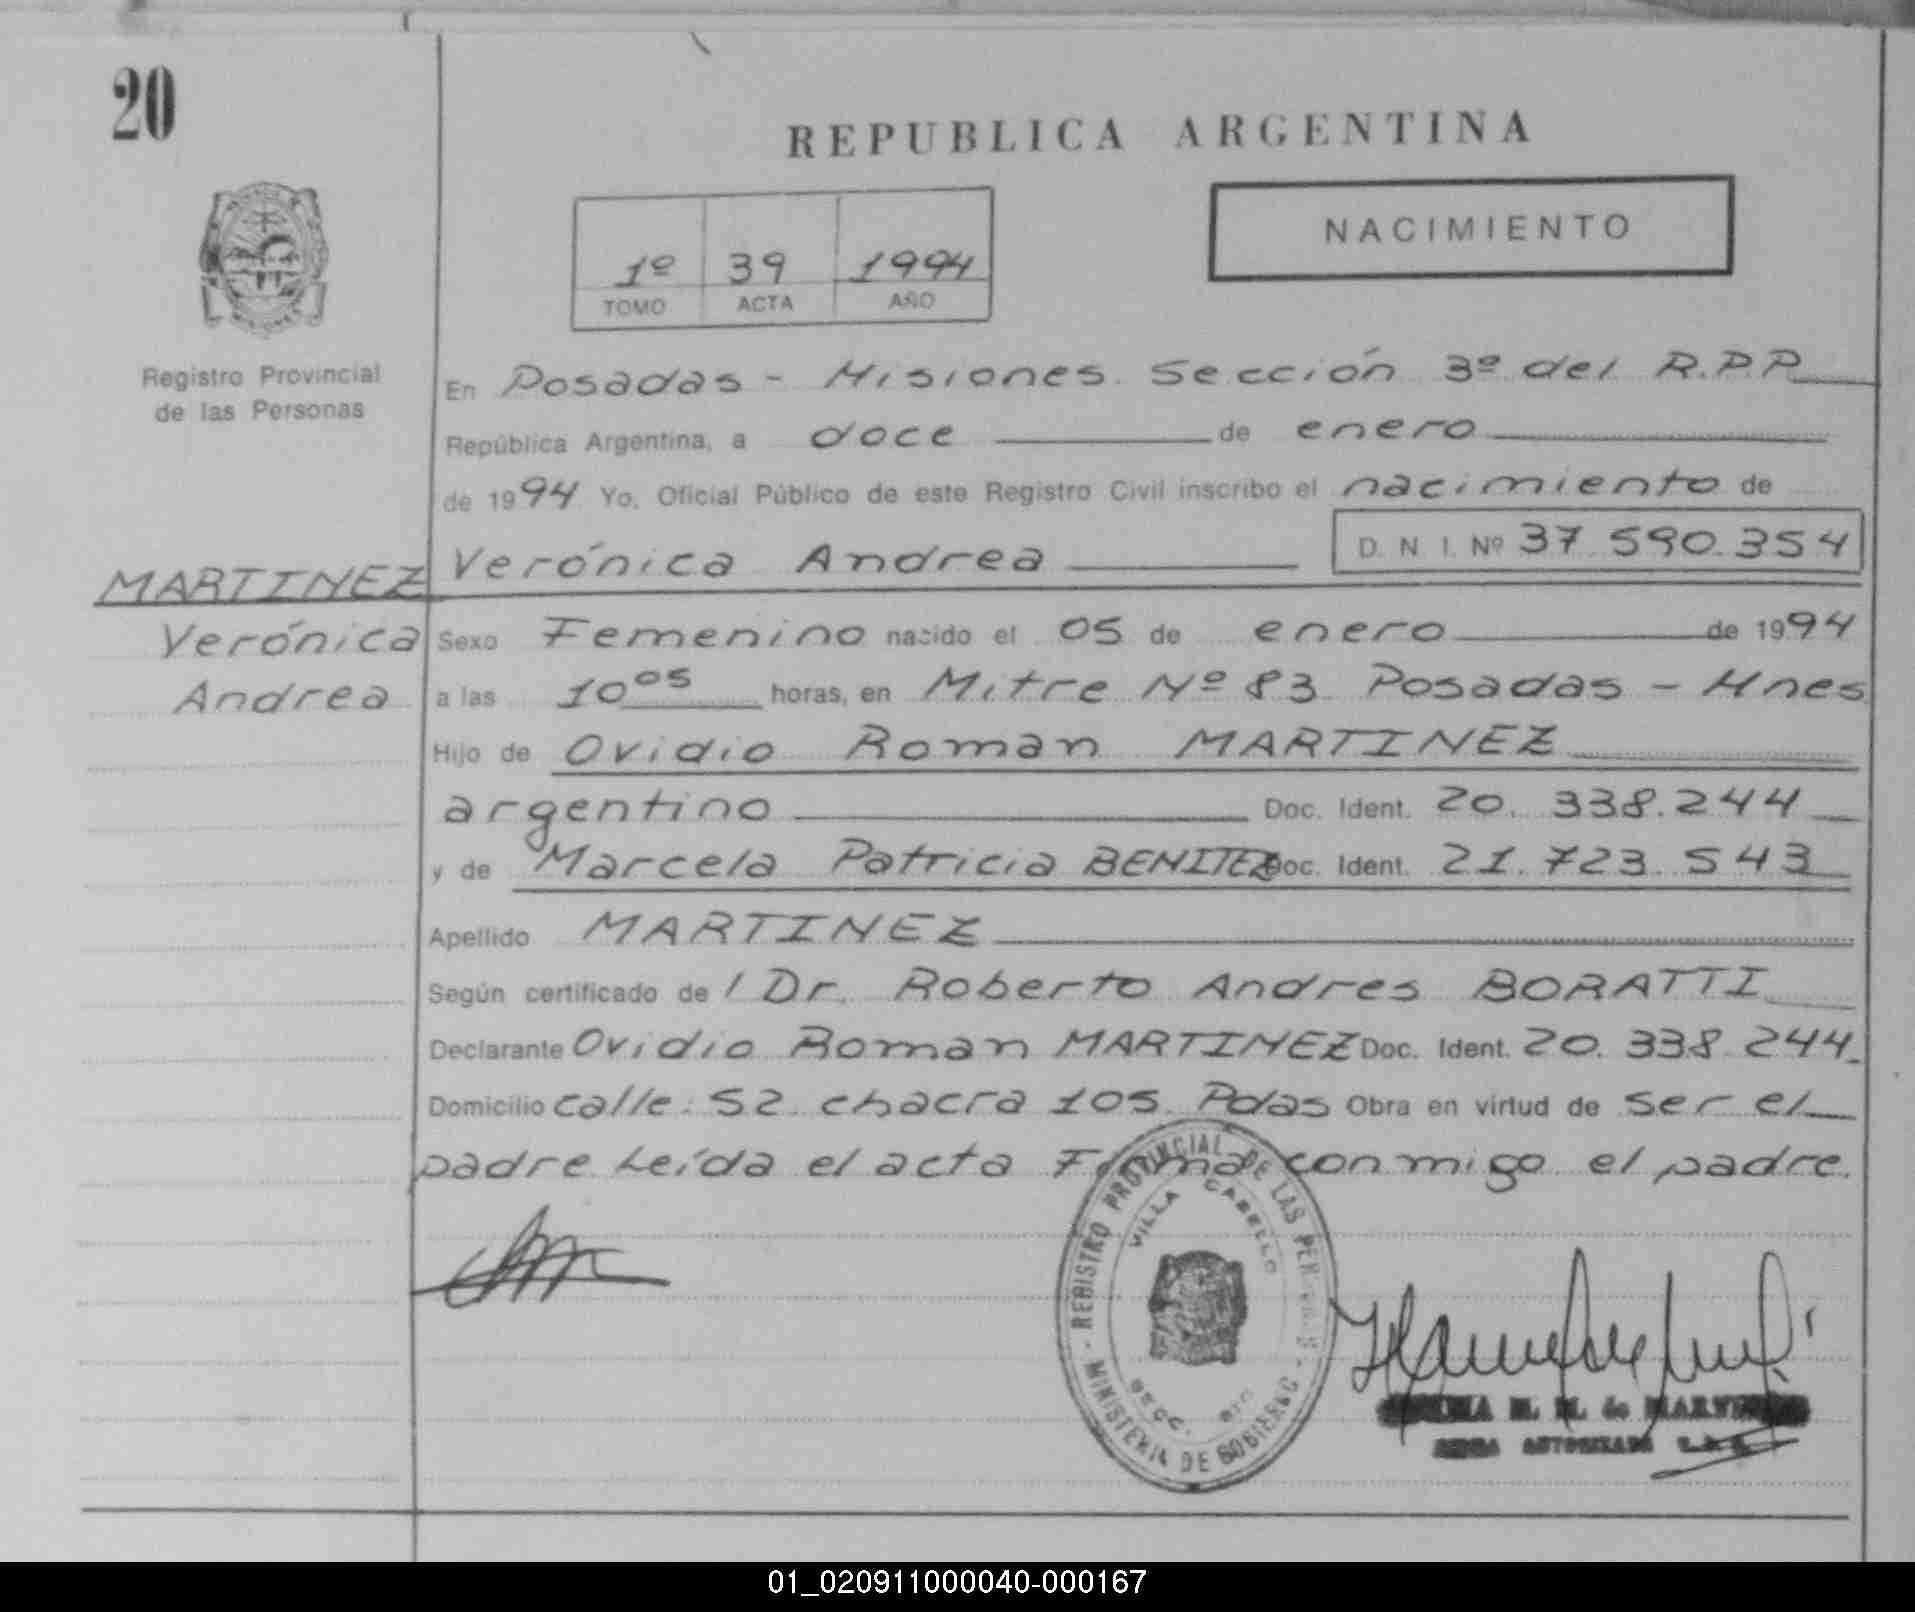 20
REPUBLICA ARGENTINA
NACIMIENTO
1º 39 1994
TOMO ACTA AÑO
Registro Provincial
de las Personas
En Posadas - Misiones Sección 3º del R.P.P.
República Argentina, a doce de enero
de 1994 Yo, Oficial Público de este Registro Civil inscribo el nacimiento de
Verónica Andrea D. N. I. Nº 37.590.354
MARTINEZ
Verónica
Andrea
Sexo Femenino nacido el 05 de enero de 1994
a las 10 05 horas, en Mitre Nº 83 Posadas - Mnes
Hijo de Ovidio Roman MARTINEZ
argentino Doc. Ident. 20.338.244
y de Marcela Patricia BENITEZ Doc. Ident. 21.723.543
Apellido MARTINEZ
Según certificado de / Dr. Roberto Andres BORATTI
Declarante Ovidio Roman MARTINEZ Doc. Ident. 20.338.244
Domicilio calle: 52 chacra 105 Pdas Obra en virtud de ser el
padre Leída el acta Firma conmigo el padre.
REGISTRO PROVINCIAL DE LAS
VILLA CABELLO
SECC.
MINISTERIO DE GOBIERNO
M. M. de
AUTORIZADA
01_020911000040-000167